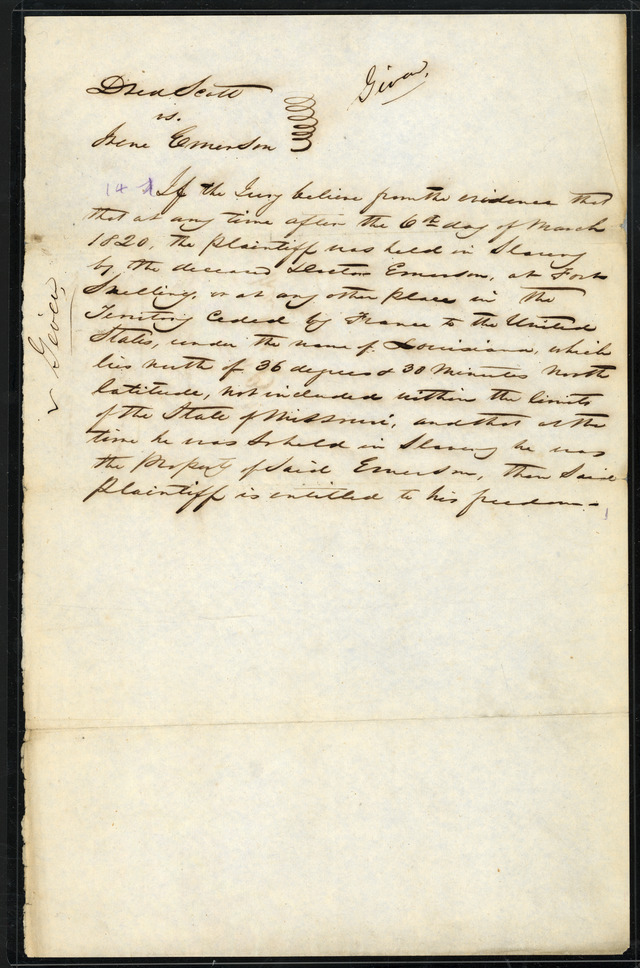 Dred Scott
vs.
Irene Emerson
Given,
14 If the Jury believe from the evidence that
that at any time after the 6th day of March
1820, the plaintiff was held in Slavery
by the deceased Doctor Emerson, at Fort
Snelling, or at any other place in the
Territory ceded by France to the United
States, under the name of Louisiana, which
lies north of 36 degrees & 30 Minutes North
latitude, not included within the limits
of the State of Missouri, and that at the
time he was so held in Slavery he was
the Property of Said Emerson, then Said
Plaintiff is entitled to his freedom.
Given,